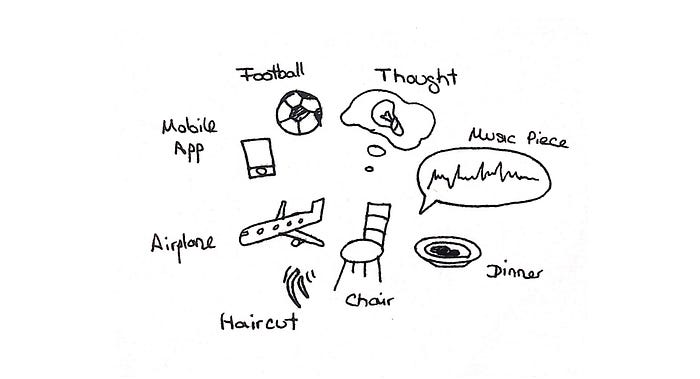 Football
Thought
Mobile
App
Music Piece
Airplane
Dinner
Chair
Haircut